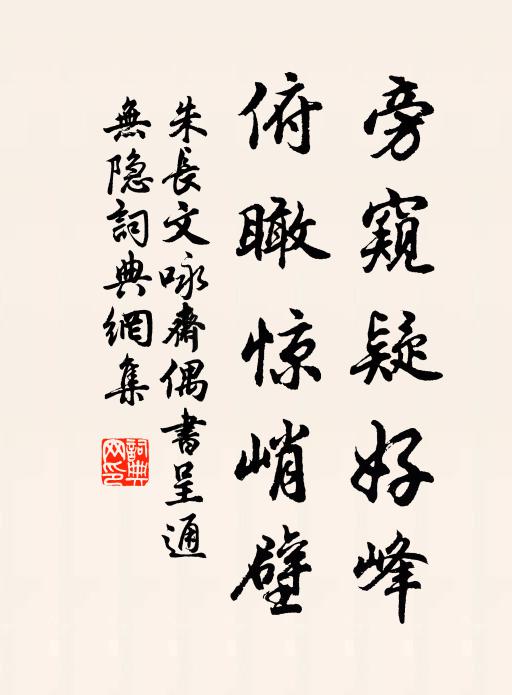 旁窺疑好峰
俯瞰惊峭壁
朱長文咏齋偶書呈通
無隐詞典網集
詞典网印